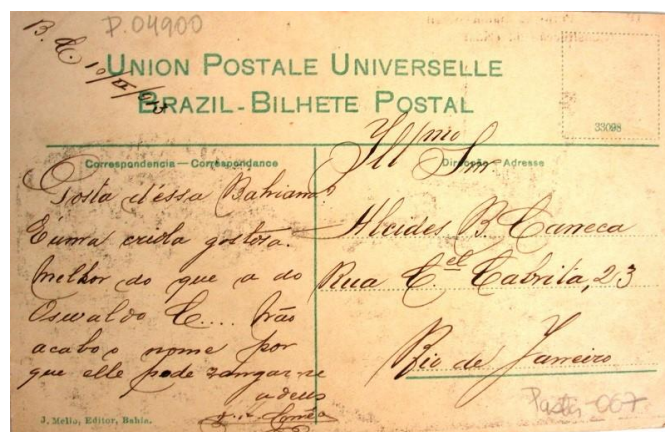 P.04900
B. 10/II/915
UNION POSTALE UNIVERSELLE
BRAZIL-BILHETE POSTAL
33098
Correspondencia — Correspondance
Gosta d'éssa Bahiana?
É uma criola gostosa.
melhor do que a do
Oswaldo C.... Não
acabo o nome por
que elle pode zangar-se
adeus
J. Mello, Editor, Bahia.
Direcção - Adresse
Illmo Snr
Alcides B. Caneca
Rua Cel Cabrita, 23
Rio de Janeiro
Pasta-067